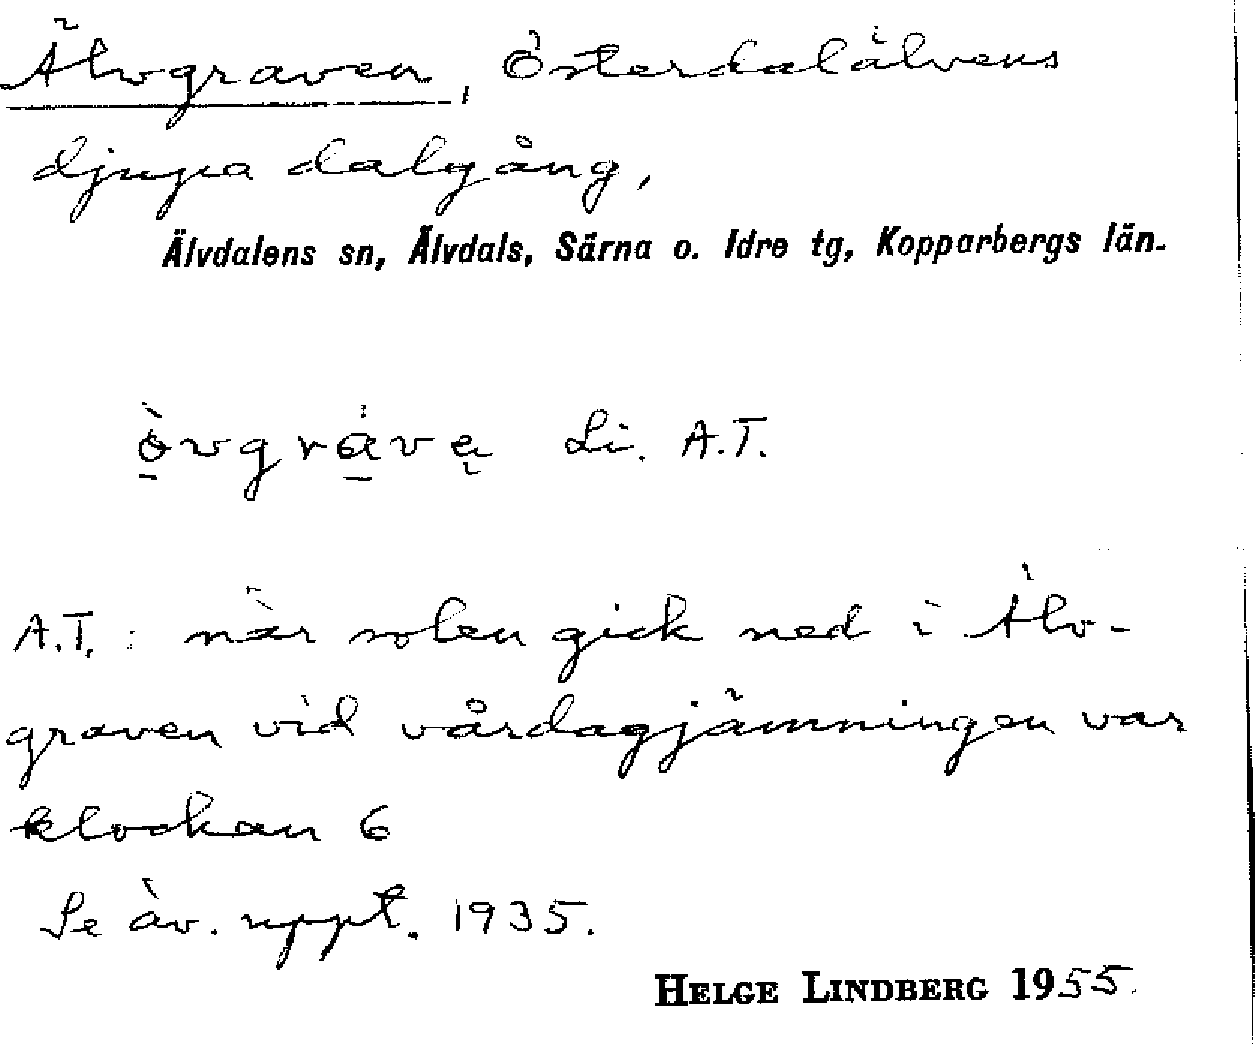 Älvgraven, Österdalälvens
djupa dalgång,
Älvdalens sn, Älvdals, Särna o. Idre tg, Kopparbergs län.
Li. A.T.
A.T. : när solen gick ned i Älv-
graven vid vårdagjämningen var
klockan 6
Se äv. uppt. 1935.
HELGE LINDBERG 1955.